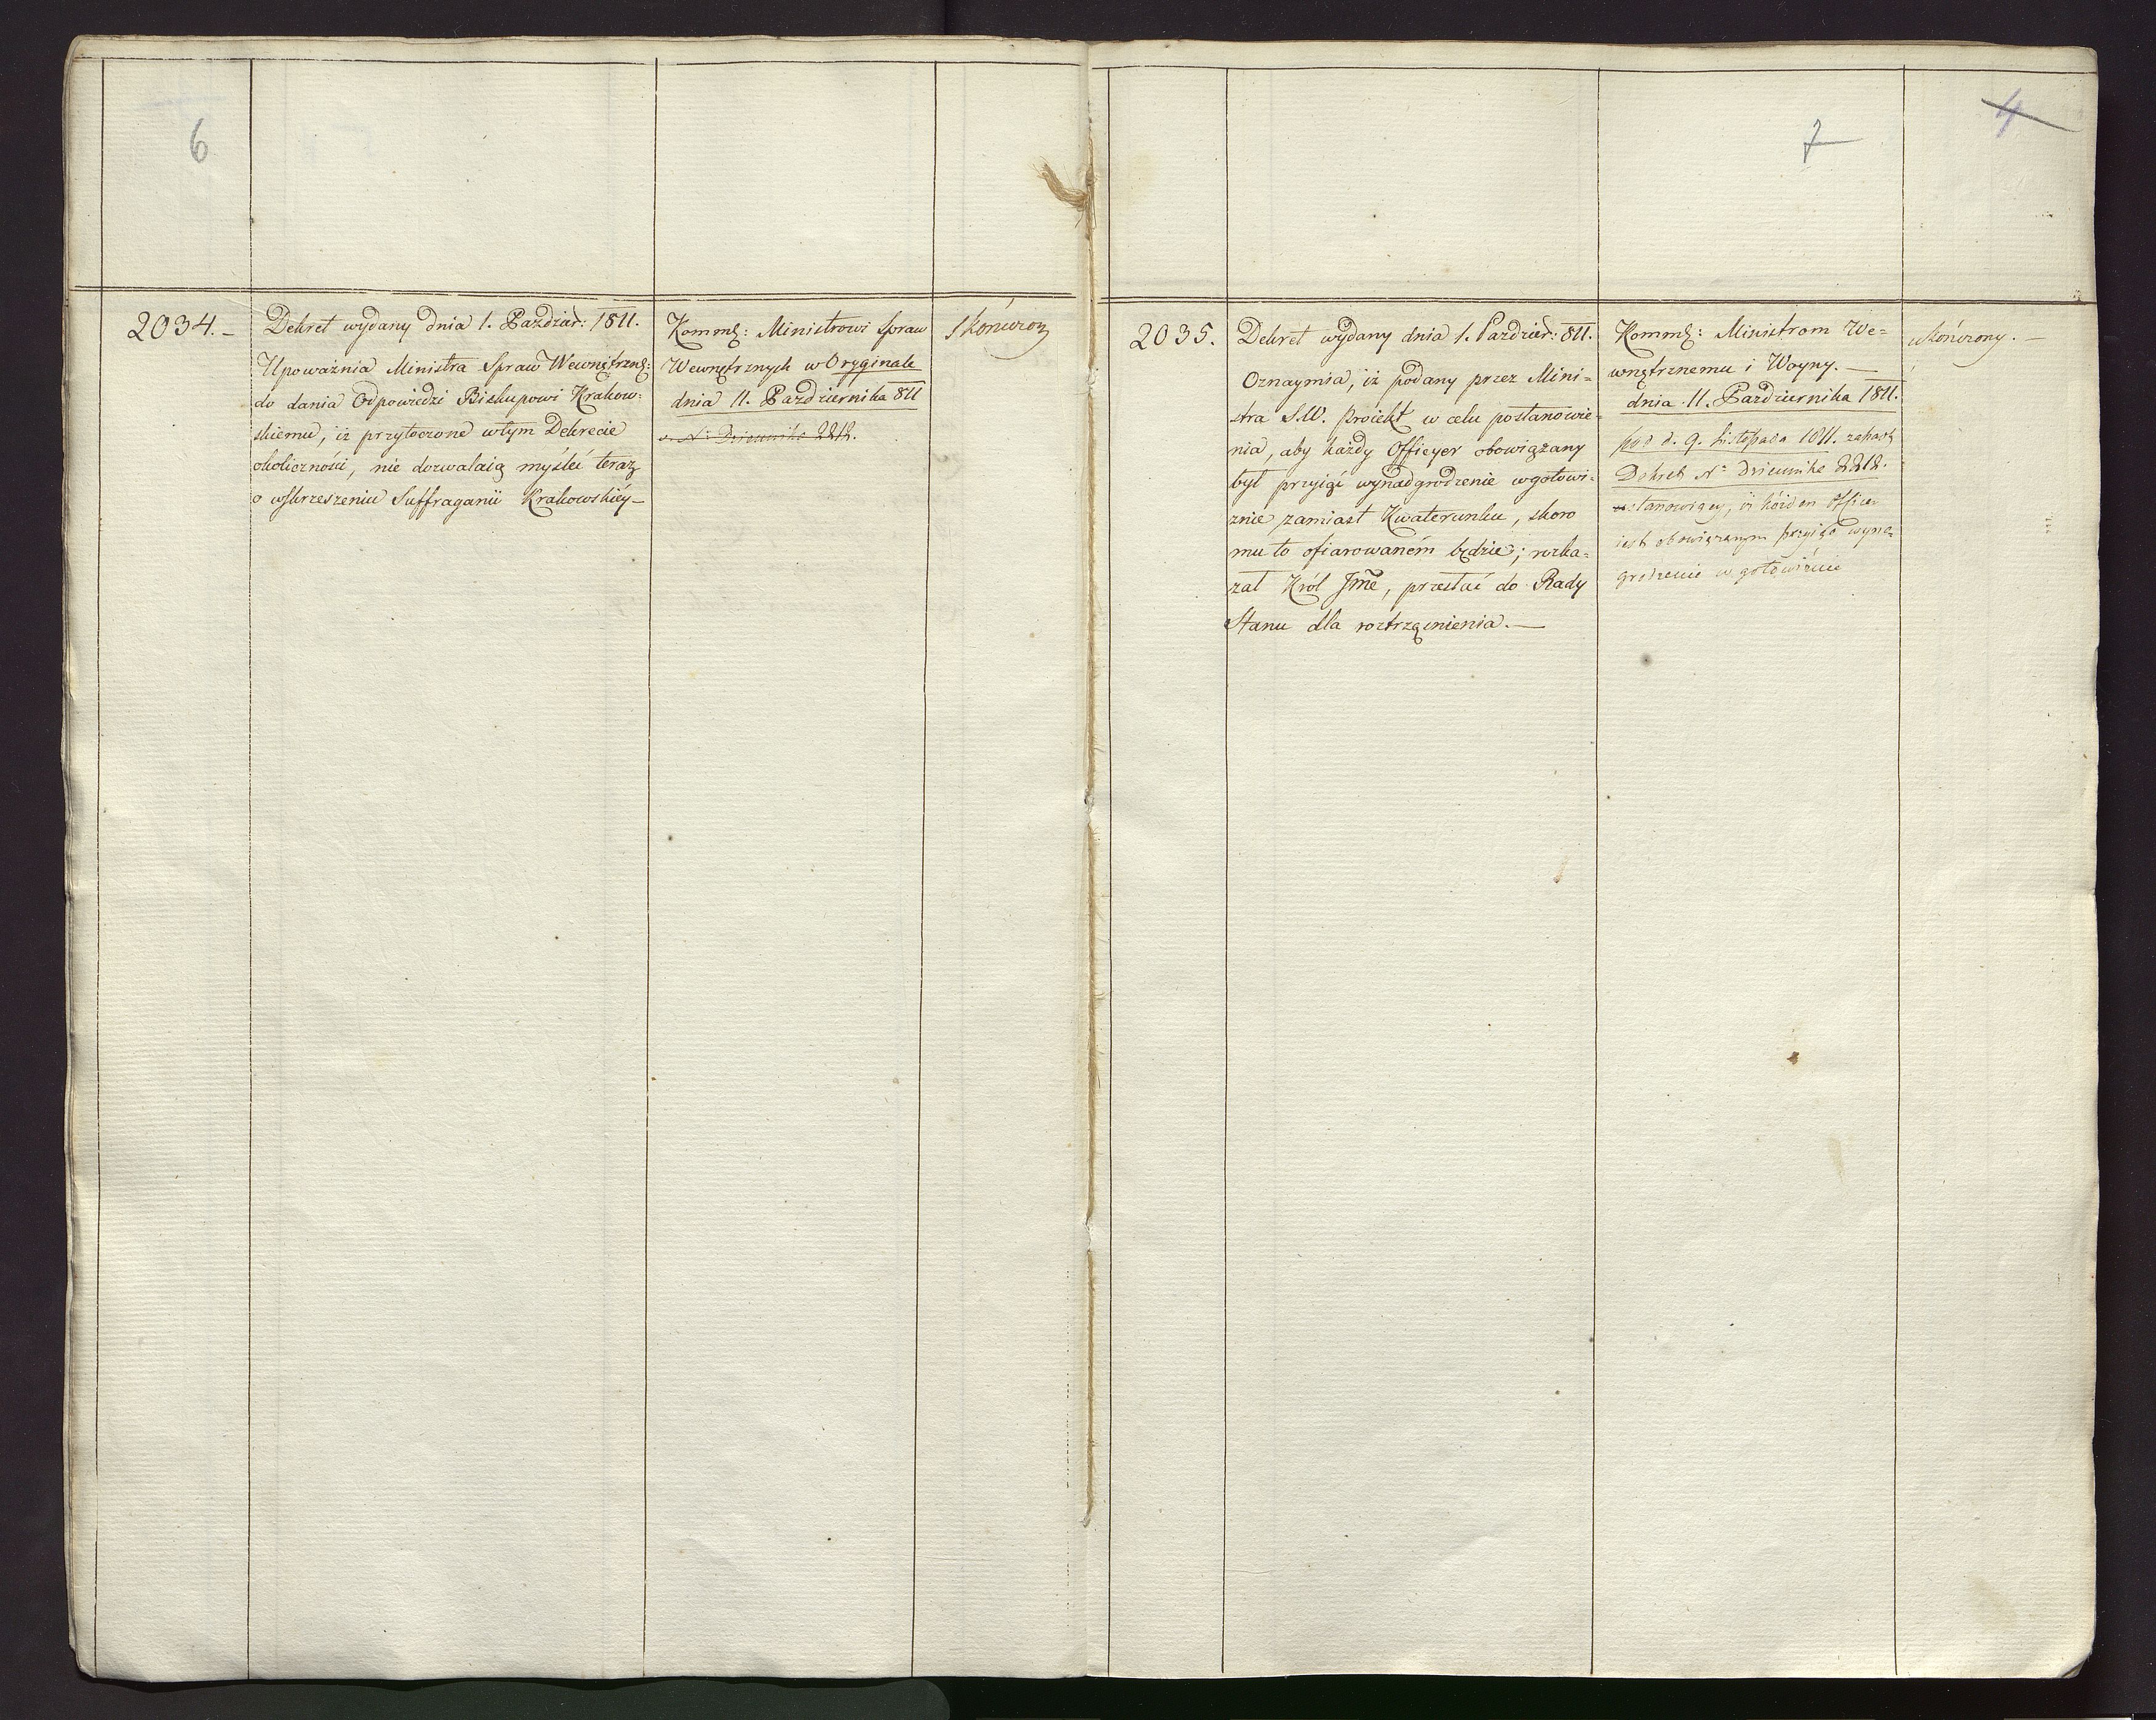 6
2034. –
Dekret wydany dnia 1. Paździer: 1811.
Upoważnia Ministra Spraw Wewnętrzn:
do dania Odpowiedzi Biskupowi Krakow-
skiemu, iż przytoczone wtym Dekrecie
okoliczności, nie dozwalaią myśleć teraz
o wskrzeszeniu Suffraganii Krakowskiéy –
Komm: Ministrowi Spraw
Wewnętrznych w Oryginale
dnia 11. Października 811
v. N: Dziennika 2212.
Skończon
7
4
2035.
Dekret wydany dnia 1. Paździer: 811.
Oznaymia, iż podany przez Mini-
stra S.W. proiekt w celu postanowie-
nia, aby każdy Officyer obowiązany
był przyiąć wynadgrodzenie wgotowi-
znie zamiast Kwaterunku, skoro
mu to ofiarowaném będzie; rozka-
zał Król Jmć, przesłać do Rady
Stanu dla roztrząśnienia. —
Komm: Ministrom We-
wnętrznemu i Woyny. —
dnia 11. Października 1811.
pod d. 9. Listopada 1811. zapadł
Dekret N: Dziennika 2212.
stanowiący, iż kóżden Office
iest obowiązanym przyiąć wyna-
grodzenie w gotowiźnie
ukończony. —